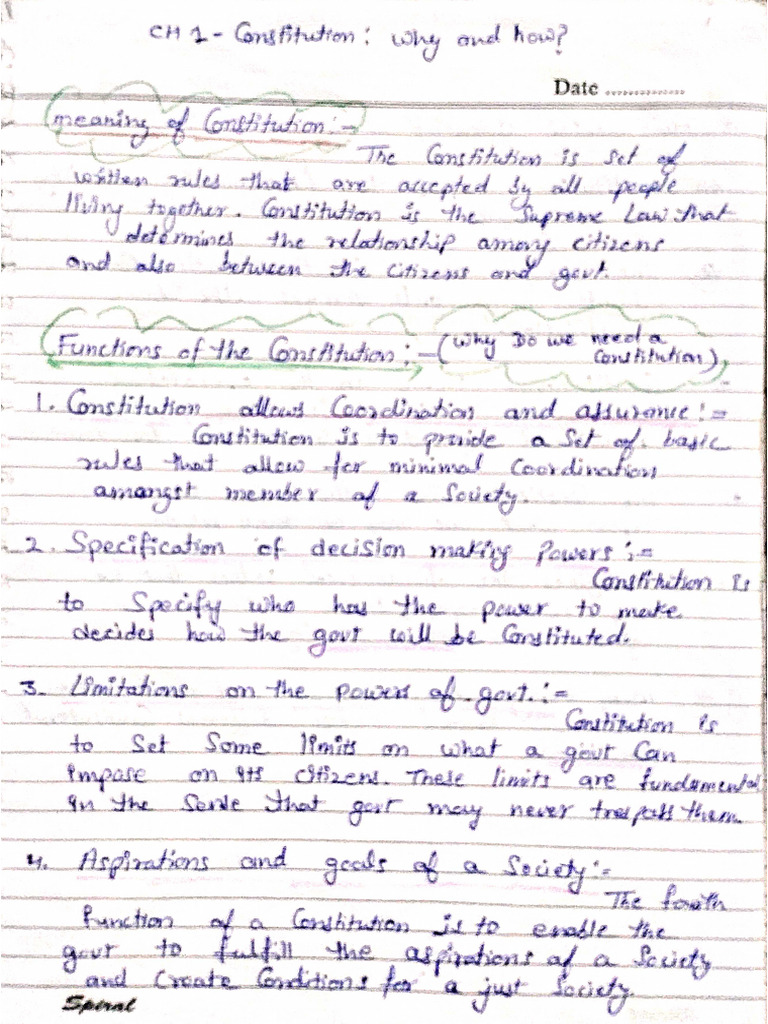 CH 1 - Constitution: Why and how?
Date ..............
meaning of Constitution :-
The Constitution is set of
written rules that are accepted by all people
living together. Constitution is the Supreme Law that
determines the relationship among citizens
and also between the citizens and govt.
Functions of the Constitution :- (Why Do we need a
Constitution),
1. Constitution allows Coordination and assurance :=
Constitution is to provide a Set of basic
rules that allow for minimal Coordination
amongst member of a Society.
2. Specification of decision making Powers :=
Constitution is
to Specify who has the power to make
decides how the govt will be Constituted.
3. Limitations on the powers of govt. :=
Constitution is
to Set Some limits on what a govt Can
impose on its citizens. These limits are fundamental
in the Sense that govt may never trespass them.
4. Aspirations and goals of a Society :=
The fourth
Function of a Constitution is to enable the
govt to fulfill the aspirations of a Society
and Create Conditions for a just Society.
Spiral